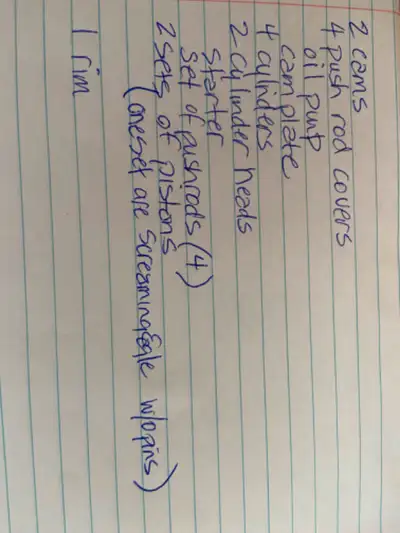 2 cams
4 push rod covers
oil pump
cam plate
4 cylinders
2 cylinder heads
starter
set of pushrods (4)
2 sets of pistons
(one set are screamingEagle w/o pins)
1 rim